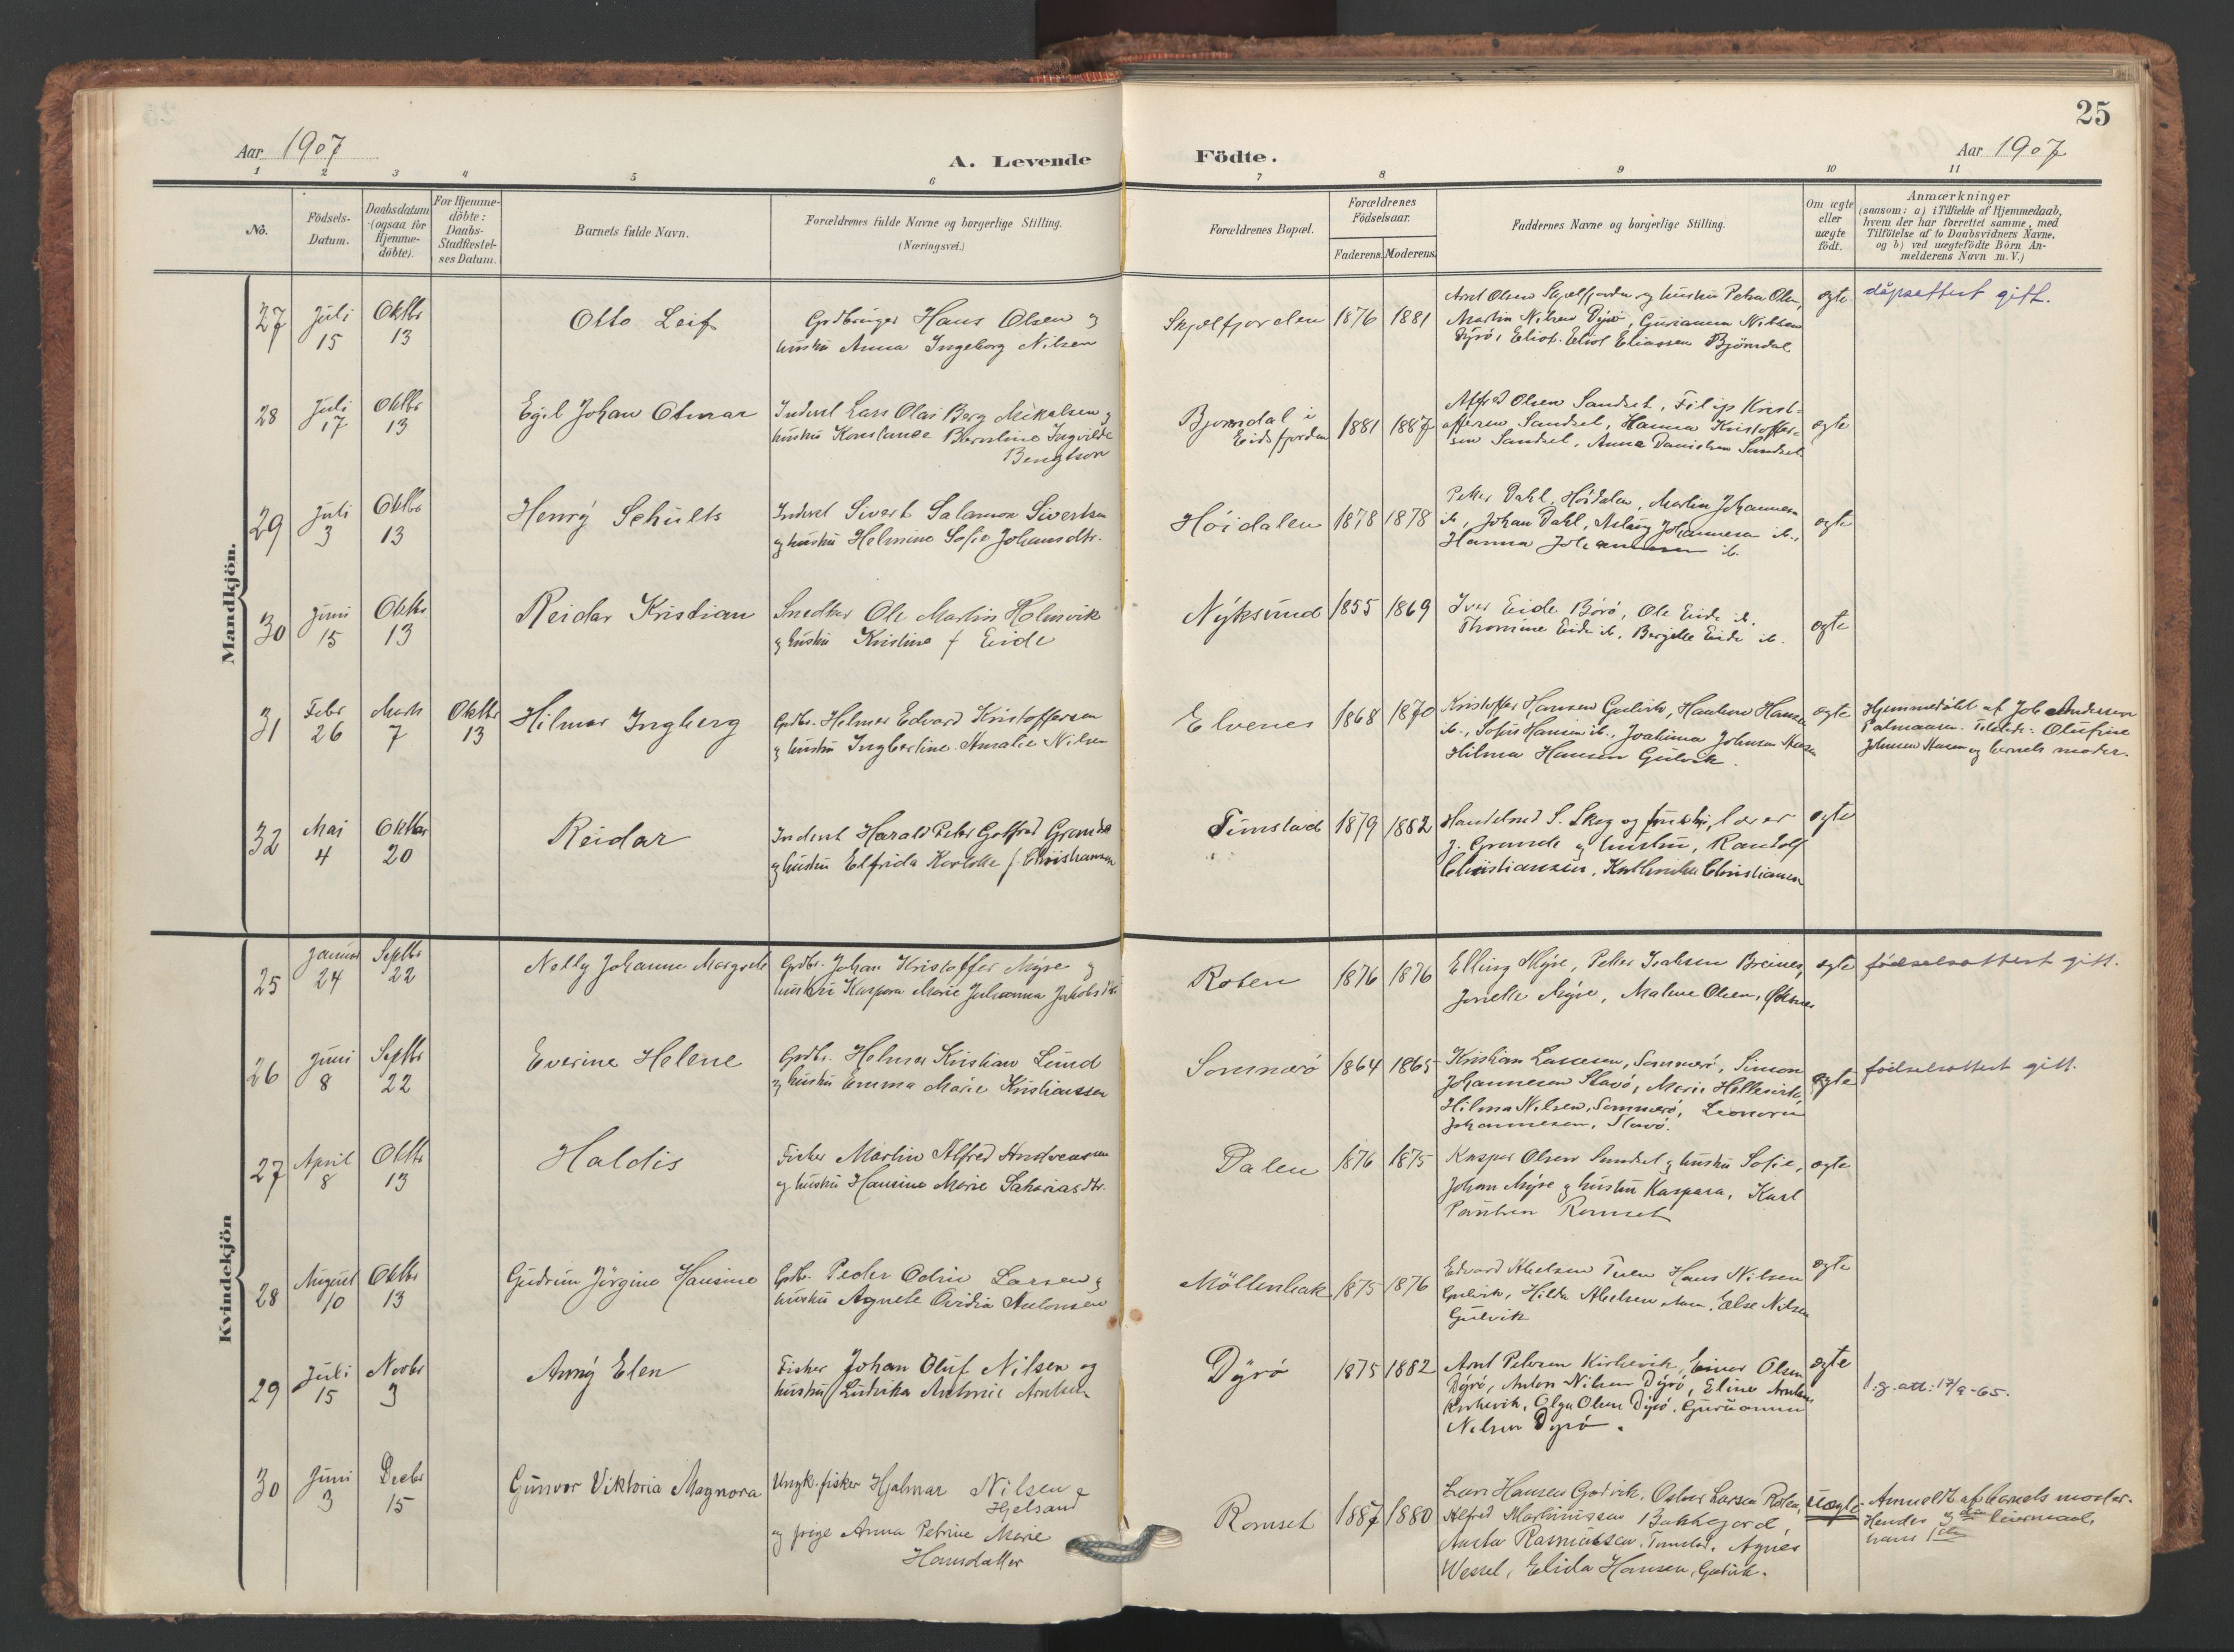 25
Aar 1907
A. Levende
Födte.
Aar 1907
1 2 3 4 5 6 7 8 9 10 11
No.
Födsels-
Datum.
Daabsdatum
(ogsaa for
Hjemme-
døbte).
For Hjemme-
döbte:
Daabs-
Stadfæstel-
ses Datum.
Barnets fulde Navn.
Forældrenes fulde Navne og borgerlige Stilling.
(Næringsvei.)
Forældrenes Bopæl.
Forældrenes
Födselsaar.
Faderens.
Moderens.
Faddernes Navne og borgerlige Stilling.
Om ægte
eller
uægte
födt.
Anmærkninger
(saasom: a) i Tilfælde af Hjemmedaab,
hvem der har forrettet samme, med
Tilföielse af to Daabsvidners Navne,
og b) ved uægtefödte Börn An-
melderens Navn m. V.)
Mandkjön.
27
Juli
15
Oktbr
13
Otto Leif
Grdbruger Hans Olsen og
hustru Anna Ingeborg Nilsen
Skjelfjorden
1876
1881
Arnt Olsen Skjelfjorden og hustru Petra Olsen,
Martin Nilsen Dyrö, Gurianna Nilsen
Dyrö, Eliot Eliassen Björndal
egte
dåpsattest gitt.
28
Juli
17
Oktbr
13
Egil Johan Otmar
Inderst Lars Olai Berg Mikalsen og
hustru Konstanse Berntine Ingvilde
Bengtson
Bjorndal i
Eidsfjorden
1881
1887
Alfred Olsen Sandset, Filip Krist-
offersen Sandset, Hanna Kristoffer-
sen Sandset, Anna Danielsen Sandset
egte
29
Juli
3
Oktbr
13
Henrÿ Schults
Inderst Sivert Salamon Sivertsen
og hustru Helmine Sofie Johansdtr.
Höidalen
1878
1878
Petter Dahl, Höidalen, Martin Johannesen
ib., Johan Dahl, Aslaug Johannesen ib.,
Hanna Johannesen ib.
egte
30
Juni
15
Oktbr
13
Reidar Kristian
Snedker Ole Martin Holmvik
og hustru Kristine f Eide
Nÿksund
1855
1869
Iver Eide Börö, Ole Eide ib.
Thomine Eide ib, Bergitte Eide ib.
egte
31
Febr
26
Marts
7
Oktbr
13
Hilmar Ingberg
Grdbr. Helmer Edvard Kristoffersen
og hustru Ingberline Amalie Nilsen
Elvenes
1868
1870
Kristoffer Hansen Gulvik, Hansen
ib., Sofus Hansen ib., Joakima Johnsen
Hilma Hansen Gulvik.
egte
Hjemmedöbt af Job Andersen
Olufine
Johnsen og barnets moder.
32
Mai
4
Oktbr
20
Reidar
Inderst Harald Peter Gotfred Grande
og hustru Elfrida f. Christiansen
Tunstad
1879
1882
Handelsmd S. Skog og hustru, lærer
J. Grande og hustru, Randolf
Christiansen, Christiansen
egte
Kvindekjön
25
Januar
24
Septbr
22
Nelly Johanne Margrete
Grdbr. Johan Kristoffer Mÿre og
hustru Kaspara Marie Julianna Jakobsdtr
Roten
1876
1876
Elling Mÿre, Petter Isaksen Breines,
Jenelle Mÿre, Malene Olsen,
egte
födselsattest gitt.
26
Juni
8
Septbr
22
Everine Helene
Grdbr. Helmer Kristian Lund
og hustru Emma Marie Kristiansen
Sommarö
1864
1865
Kristian Lassesen, Sommarö, Simon
Johannesen Stavö, Marie
Hilma Nilsen, Sommarö, Leonora
Johannesen, Stavö.
egte
födselsattest gitt.
27
April
8
Oktbr
13
Haldis
Fisker Martin Alfred Andreassen
og hustru Hansine Marie Sakariasdtr.
Dalen
1876
1875
Kaspar Olsen Sandset og hustru Sofie,
Johan Mÿre og hustru Kaspara, Karl
Paulsen Romset
egte
28
August
10
Oktbr
13
Gudrun Jörgine Hansine
Grdbr. Peder Odin Larsen og
hustru Agnete Ovidia Antonsen
Möllenbak
1875
1876
Edvard Abelsen Tuen Hans Nilsen
Gulvik, Hilda Abelsen, Else Nilsen
Gulvik
egte
29
Juli
15
Novbr
3
Annÿ Elen
Fisker Johan Oluf Nilsen og
hustru Ludvika Antonie Arntsen
Dÿrö
1875
1882
Arnt Petersen Kirkevik, Einar Olsen
Dÿrö, Anton Nilsen Dÿrö, Eline Arntsen
Kirkevik, Olga Olsen Dÿrö, Gurianna
Nilsen Dyrö.
egte
f.g. att: 17/9-65.
30
Juni
3
Decbr
15
Gunvor Viktoria Magnora
Ungk. fisker Hjalmar Nilsen
Hjelsand
og pige Anna Petrine Marie
Hansdatter
Romset
1887
1880
Lars Hansen Godvik, Oskar Larsen Roten,
Alfred Martinussen Bakkejord,
Rasmussen, Tunstad, Agnes
Wessel, Elida Hansen, Godvik.
uægte
Anmeldt af barnets moder.
Hendes 3die leiermaal,
hans 1ste